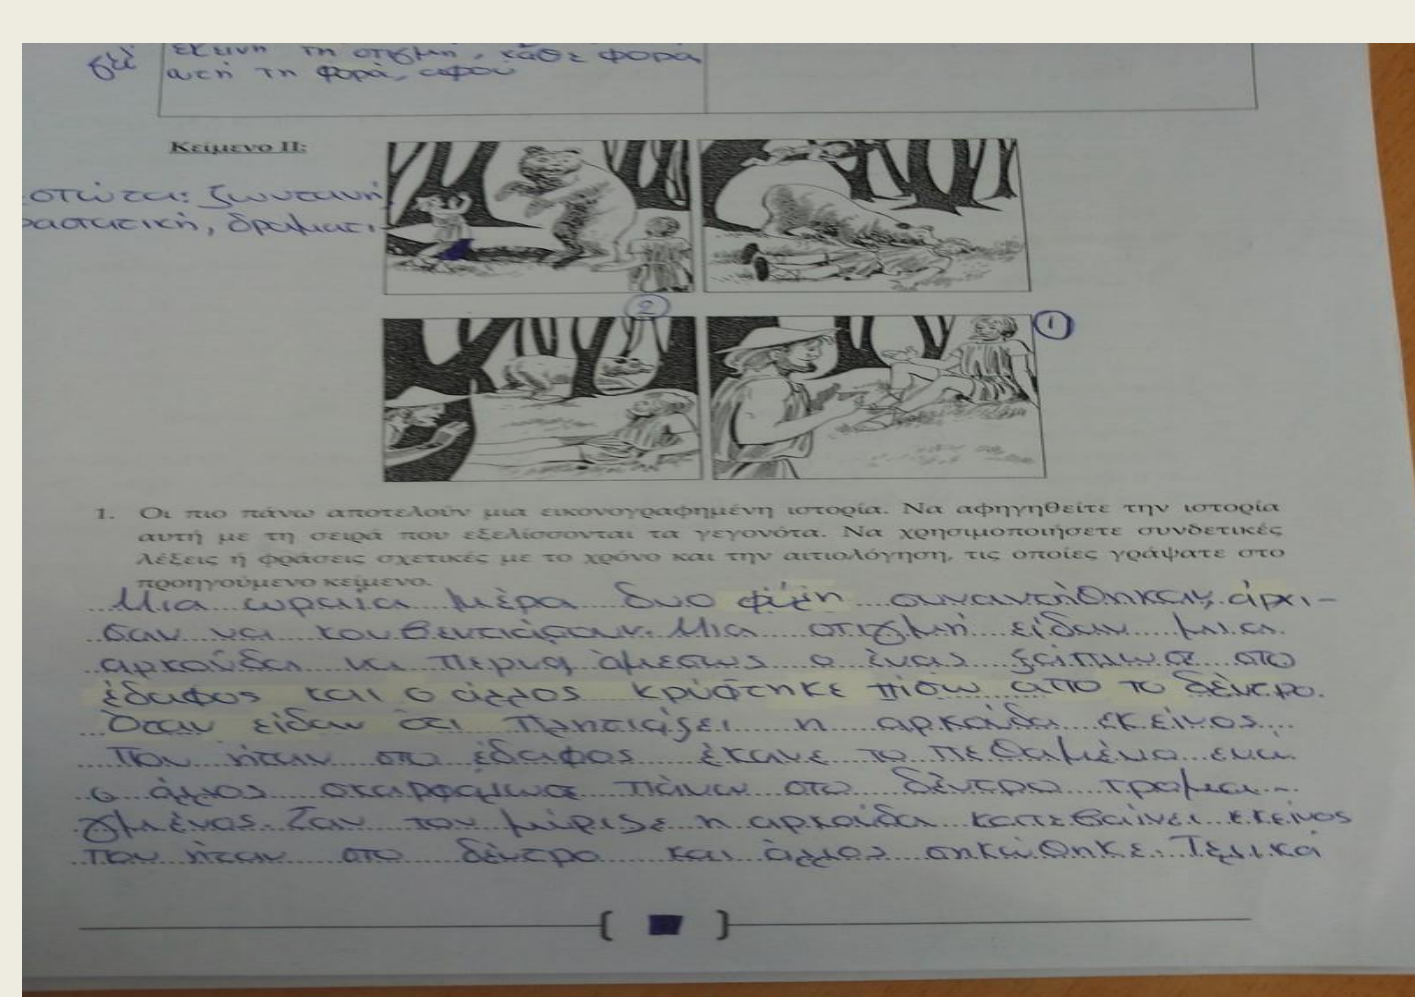 εκείνη τη στιγμή, κάθε φορά,
αυτή τη φορά, αφού
Κείμενο ΙΙ:
στώτα: ζωντανή
ραστατική, δραματι
2
1
1. Οι πιο πάνω αποτελούν μια εικονογραφημένη ιστορία. Να αφηγηθείτε την ιστορία
αυτή με τη σειρά που εξελίσσονται τα γεγονότα. Να χρησιμοποιήσετε συνδετικές
λέξεις ή φράσεις σχετικές με το χρόνο και την αιτιολόγηση, τις οποίες γράψατε στο
προηγούμενο κείμενο.
Μια ωραία μέρα δυο φίλη συναντήθηκαν, άρχι-
σαν να κουβεντιάσουν. Μια στιγμή είδαν μια
αρκούδα να περνά άμεσως ο ένας ξάπλωσε στο
έδαφος και ο άλλος κρύφτηκε πίσω απο το δέντρο.
Όταν είδαν ότι πλησιάζει η αρκούδα εκείνος
που ήταν στο έδαφος έκανε το πεθαμένο ενω
ο άλλος σκαρφαλωσε πάνω στο δέντρο τρομα-
γμένος. Σαν τον μύρισε η αρκούδα κατεβαίνει εκείνος
που ήταν στο δέντρο και άλλος σηκώθηκε. Τελικά